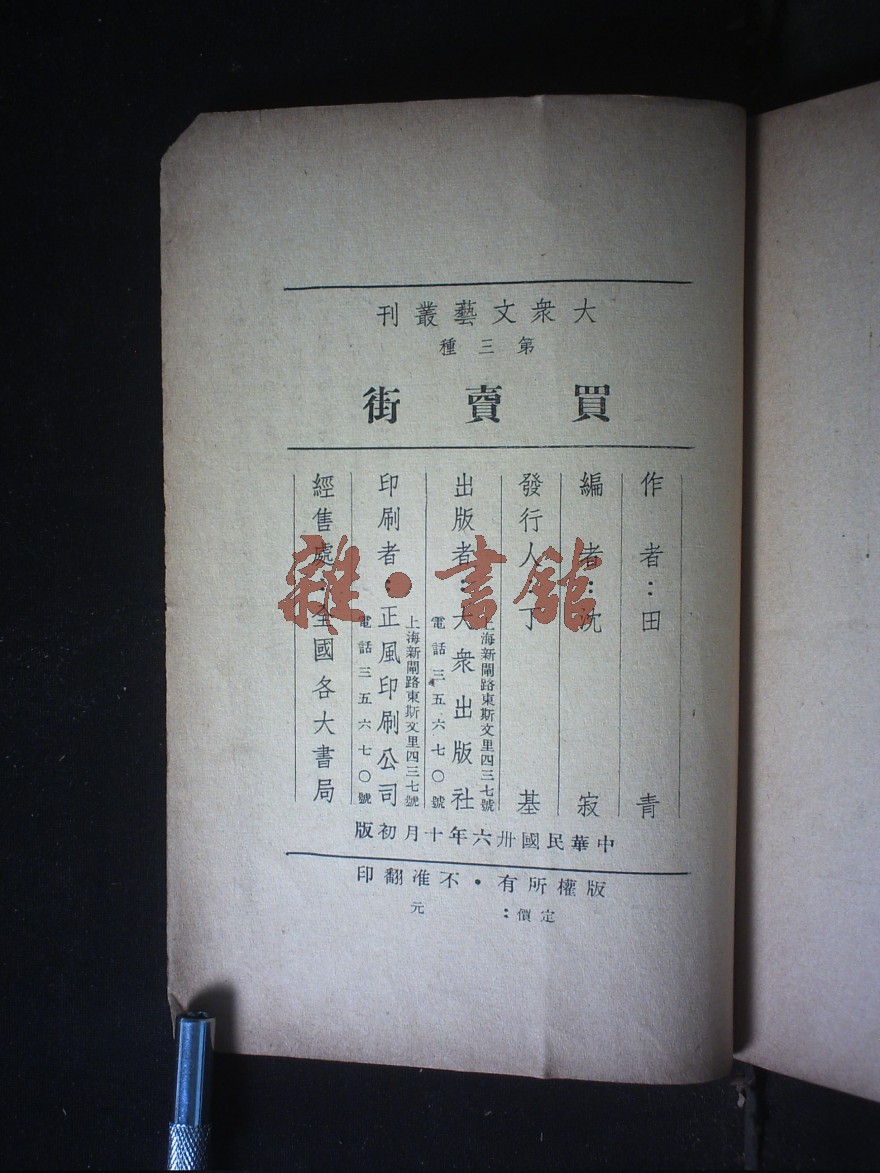 大衆文藝叢刊
第三種
買賣街
作者：田青
編者：沈寂
發行人 丁基
上海新閘路東斯文里四三七號
出版者 大衆出版社
電話三五六七〇號
上海新閘路東斯文里四三七號
印刷者：正風印刷公司
電話三五六七〇號
經售處 全國各大書局
中華民國卅六年十月初版
版權所有·不准翻印
定價： 元
雜·書館